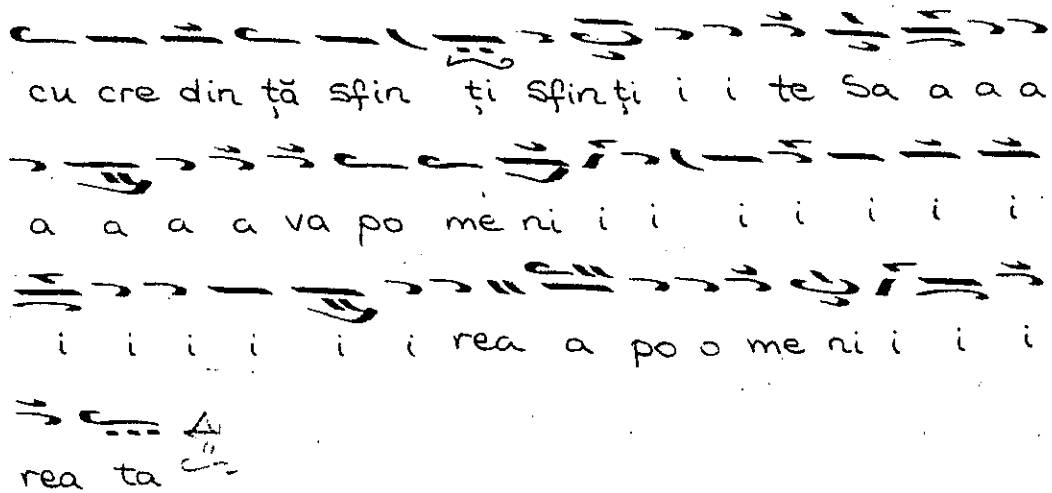 cu cre din ță sfin ți sfin ți i i te Sa a a a
a a a a va po me ni i i i i i i i
i i i i i i rea a po o me ni i i i
rea ta